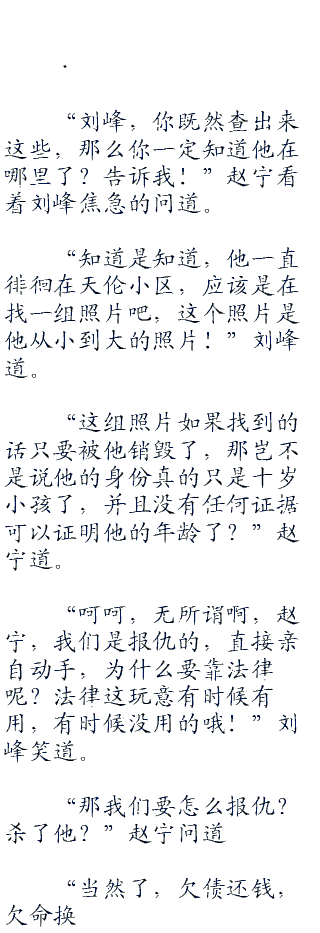 “刘峰，你既然查出来
这些，那么你一定知道他在
哪里了？告诉我！”赵宁看
着刘峰焦急的问道。
“知道是知道，他一直
徘徊在天伦小区，应该是在
找一组照片吧，这个照片是
他从小到大的照片！”刘峰
道。
“这组照片如果找到的
话只要被他销毁了，那岂不
是说他的身份真的只是十岁
小孩了，并且没有任何证据
可以证明他的年龄了？”赵
宁道。
“呵呵，无所谓啊，赵
宁，我们是报仇的，直接亲
自动手，为什么要靠法律
呢？法律这玩意有时候有
用，有时候没用的哦！”刘
峰笑道。
“那我们要怎么报仇？
杀了他？”赵宁问道
“当然了，欠债还钱，
欠命换